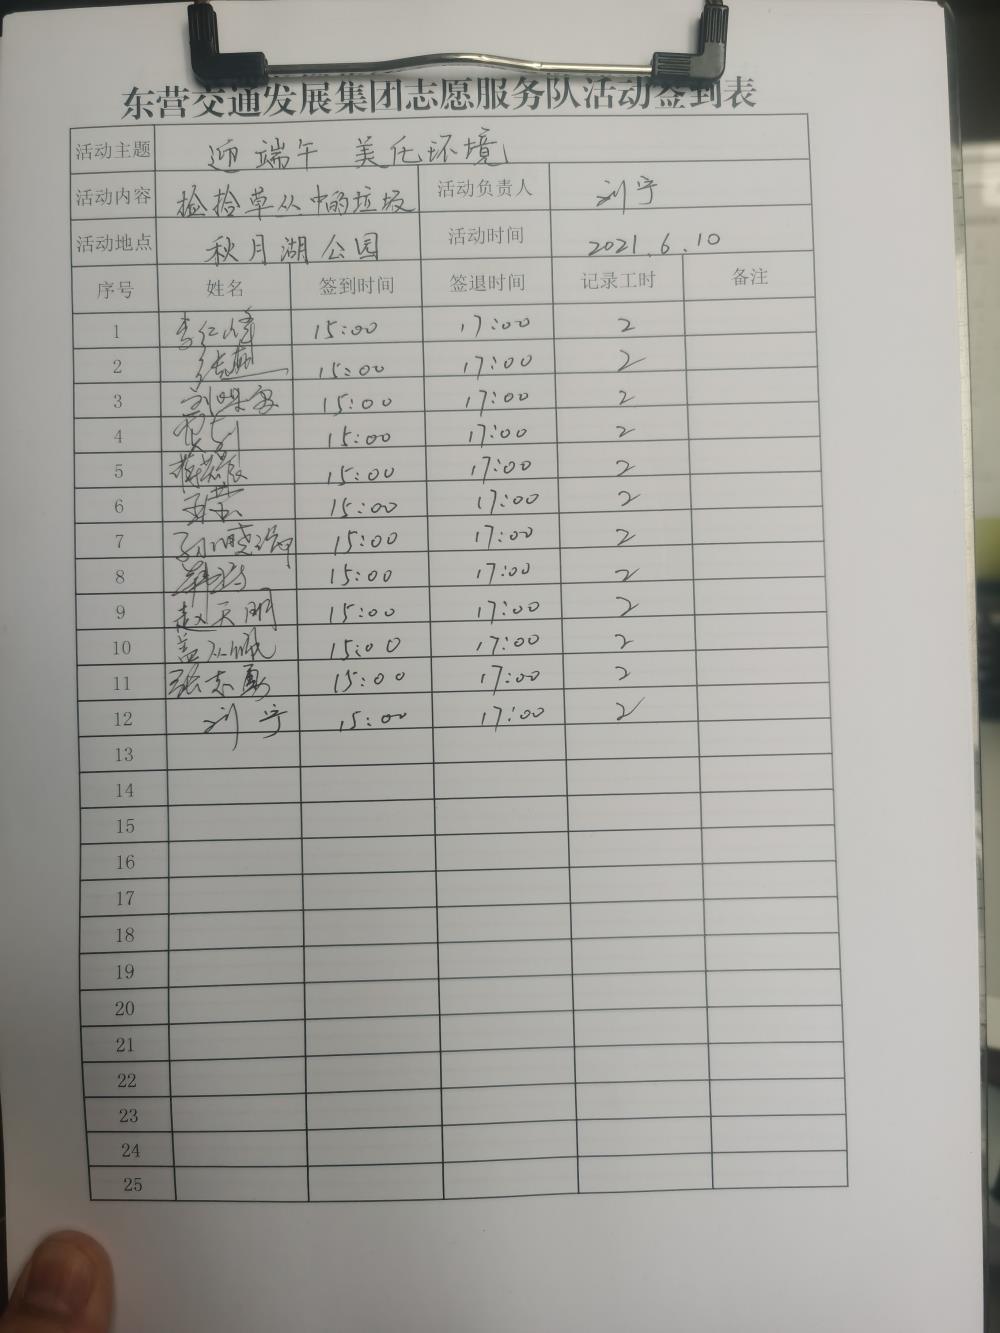 东营交通发展集团志愿服务队活动签到表
活动主题 迎端午 美化环境
活动内容 捡拾草丛中的垃圾 活动负责人 刘宁
活动地点 秋月湖公园 活动时间 2021.6.10
序号 姓名 签到时间 签退时间 记录工时 备注
1 李仁峰 15:00 17:00 2
2 15:00 17:00 2
3 15:00 17:00 2
4 15:00 17:00 2
5 15:00 17:00 2
6 15:00 17:00 2
7 孙晓 15:00 17:00 2
8 15:00 17:00 2
9 赵天明 15:00 17:00 2
10 15:00 17:00 2
11 张志勇 15:00 17:00 2
12 刘宁 15:00 17:00 2
13
14
15
16
17
18
19
20
21
22
23
24
25